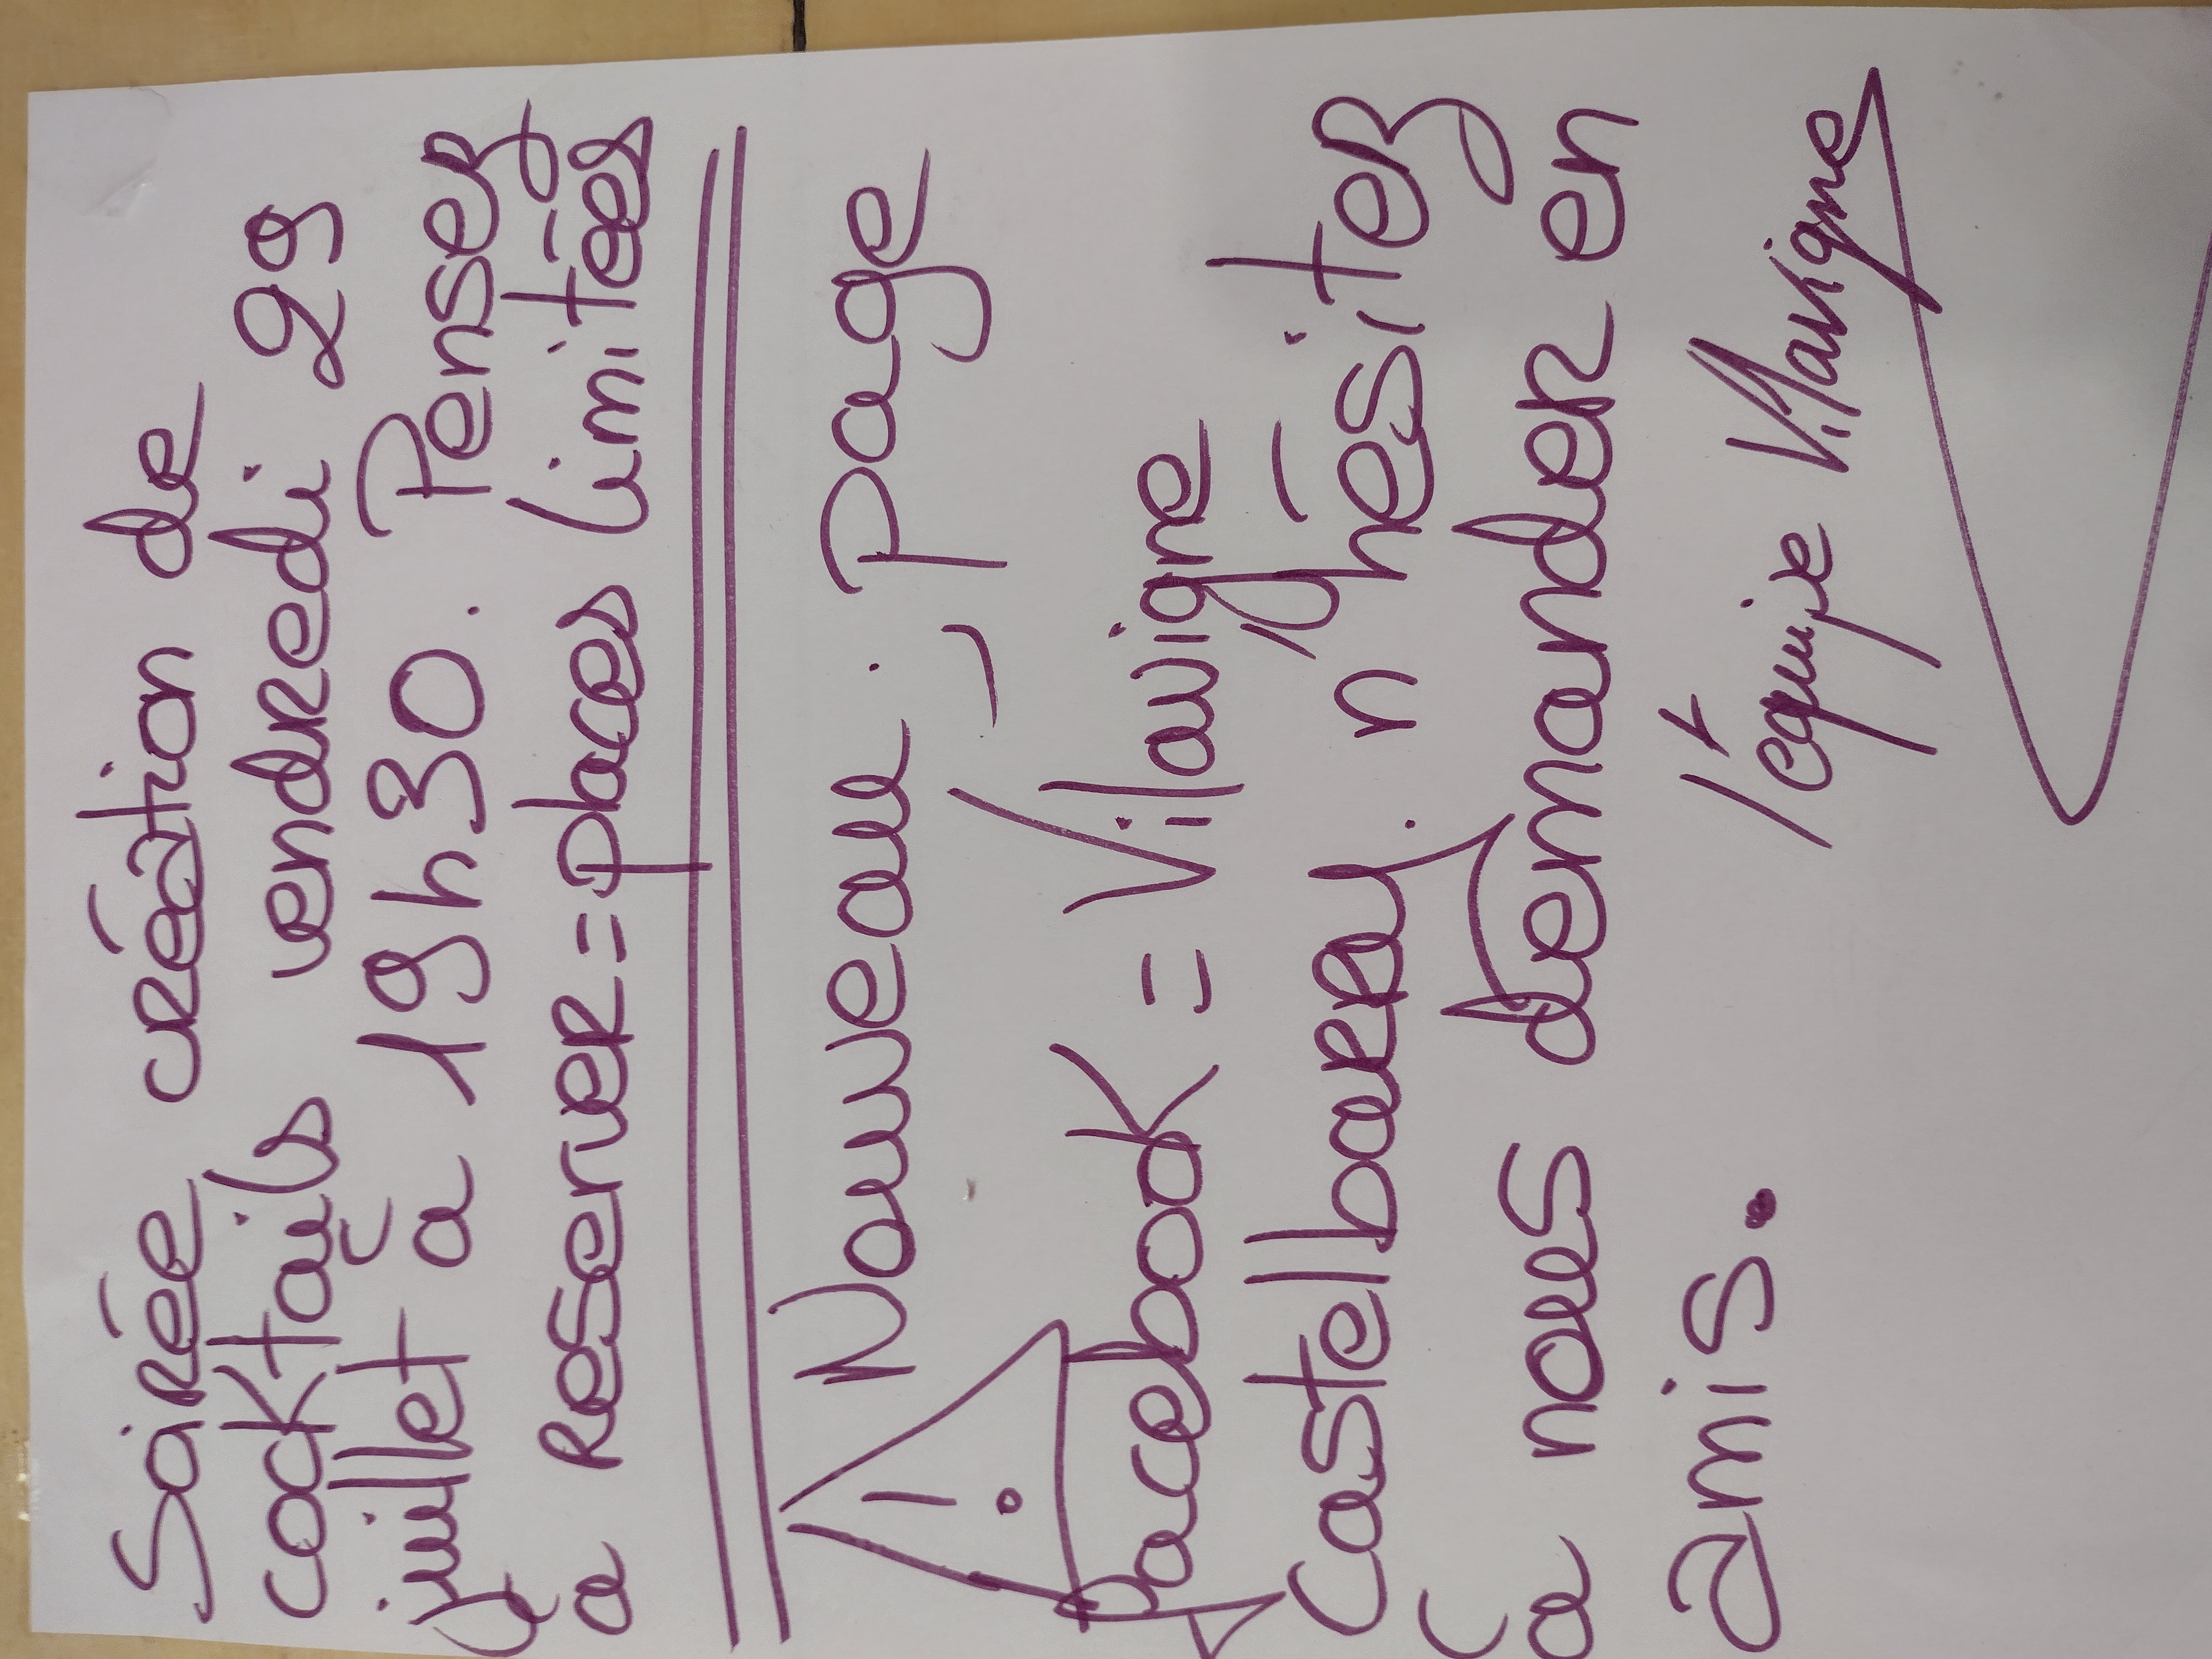 Soirée création de
cocktails vendredi 29
juillet à 19h30. Pensez
à Reserver = places limitées
! Nouveau : page
Facebook = Vilavigne
Castelbaery. n'hésitez
à nous demander en
amis.
l'équipe Vilavigne